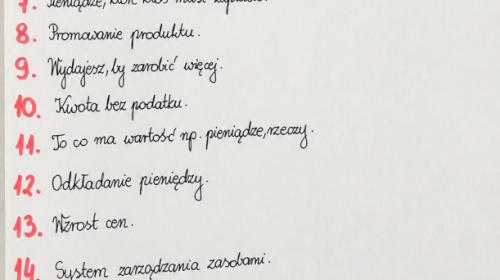 7. Pieniądze, które ktoś musi zapłacić.
8. Promowanie produktu.
9. Wydajesz, by zarobić więcej.
10. Kwota bez podatku.
11. To co ma wartość np. pieniądze, rzeczy.
12. Odkładanie pieniędzy.
13. Wzrost cen.
14. System zarządzania zasobami.